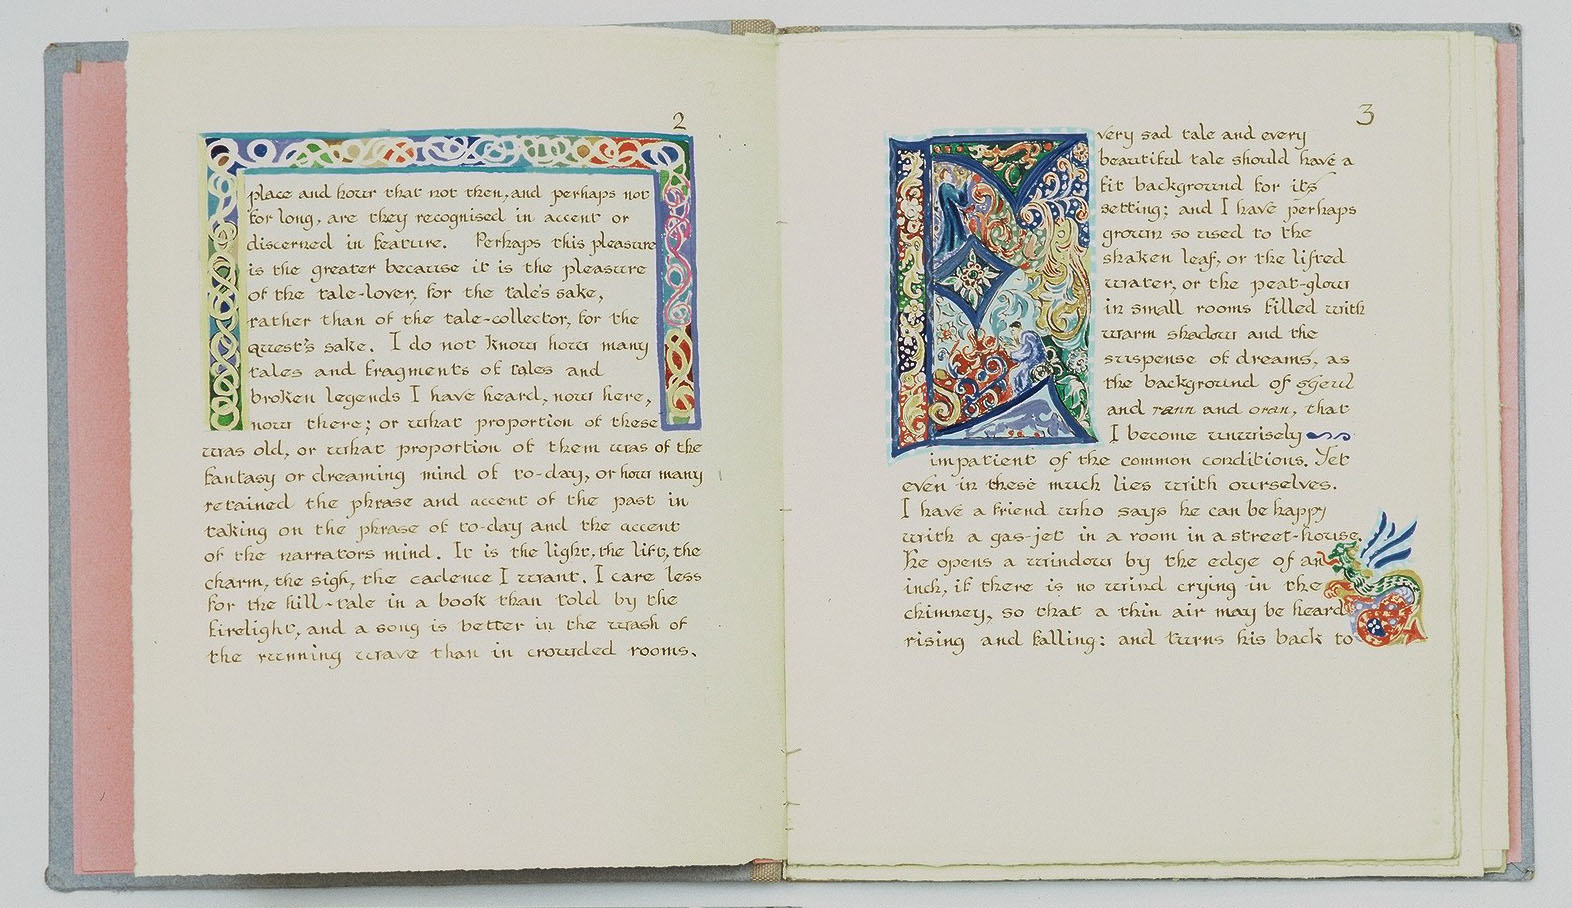 2
place and hour that not then, and perhaps not
for long, are they recognised in accent or
discerned in feature. Perhaps this pleasure
is the greater because it is the pleasure
of the tale-lover, for the tale's sake,
rather than of the tale-collector, for the
quest's sake. I do not know how many
tales and fragments of tales and
broken legends I have heard, now here,
now there; or what proportion of these
was old, or what proportion of them was of the
fantasy or dreaming mind of to-day, or how many
retained the phrase and accent of the past in
taking on the phrase of to-day and the accent
of the narrators mind. It is the light, the lift, the
charm, the sigh, the cadence I want. I care less
for the hill-tale in a book than told by the
firelight, and a song is better in the wash of
the running wave than in crowded rooms.
3
Every sad tale and every
beautiful tale should have a
fit background for its
setting; and I have perhaps
grown so used to the
shaken leaf, or the lifted
water, or the peat-glow
in small rooms filled with
warm shadow and the
suspense of dreams, as
the background of sgeul
and rann and oran, that
I become unwisely
impatient of the common conditions. Yet
even in these much lies with ourselves.
I have a friend who says he can be happy
with a gas-jet in a room in a street-house.
he opens a window by the edge of an
inch, if there is no wind crying in the
chimney, so that a thin air may be heard
rising and falling: and turns his back to